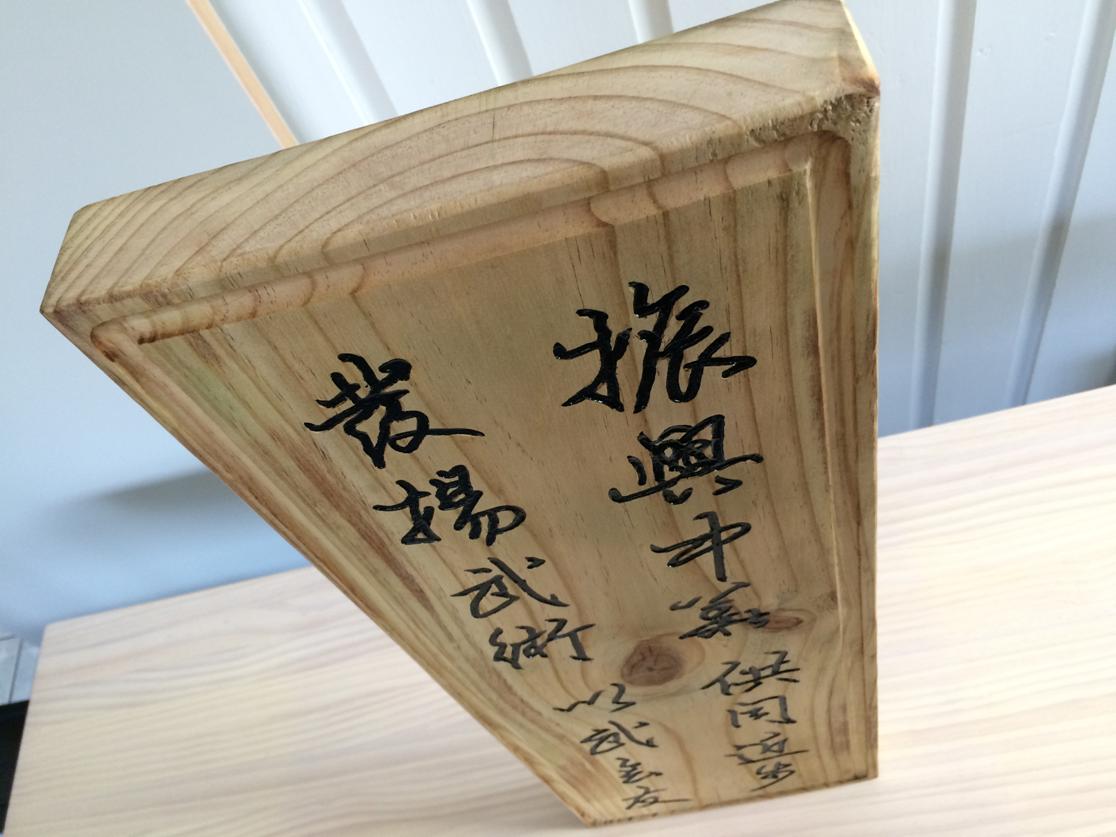 振興中華 供同近步
發揚武術 以武会友